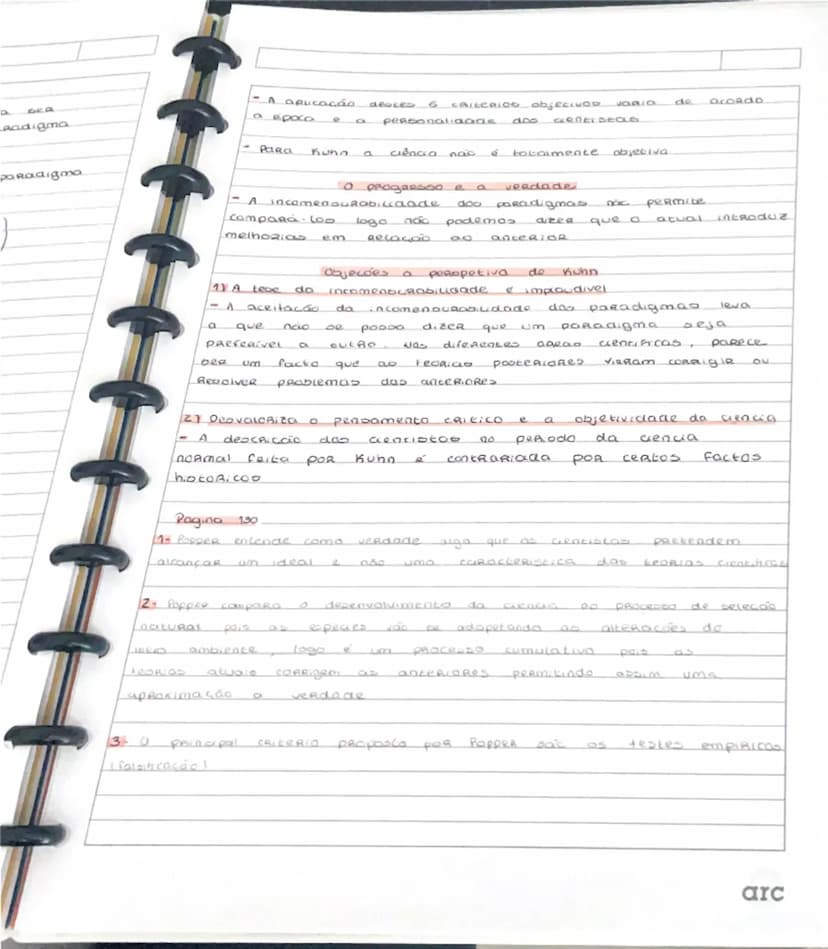 a ser
radigma
paradigma
)
- A aplicação destes 5 critérios objectivos varia de acordo
a época e a personalidade dos cientistas
- Para Kuhn a ciência não é totalmente objetiva
O progresso e a verdade
- A incomensurabilidade dos paradigmas não permite
compará-los logo não podemos dizer que o atual introduz
melhorias em relação ao anterior
Objeções a perspetiva de Kuhn
1) A tese da incomensurabilidade é implausível
- A aceitação da incomensurabilidade dos paradigmas leva
a que não se possa dizer que um paradigma seja
preferível a outro. Nas diferentes áreas científicas, parece
ser um facto que as teorias posteriores vieram corrigir ou
resolver problemas das anteriores
2) Desvaloriza o pensamento crítico e a objetividade da ciência
- A descrição dos cientistas no período da ciência
normal feita por Kuhn é contrariada por certos factos
históricos
Página 190
1- Popper entende como verdade algo que os cientistas pretendem
alcançar um ideal e não uma característica das teorias científicas
2- Popper compara o desenvolvimento da ciência ao processo de seleção
natural pois as espécies vão se adapetando as alterações do
meio ambiente, logo é um processo cumulativo pois as
teorias atuais corrigem as anteriores permitindo assim uma
aproximação a verdade
3- O principal critério proposto por Popper são os testes empíricos
(falsificação)
arc